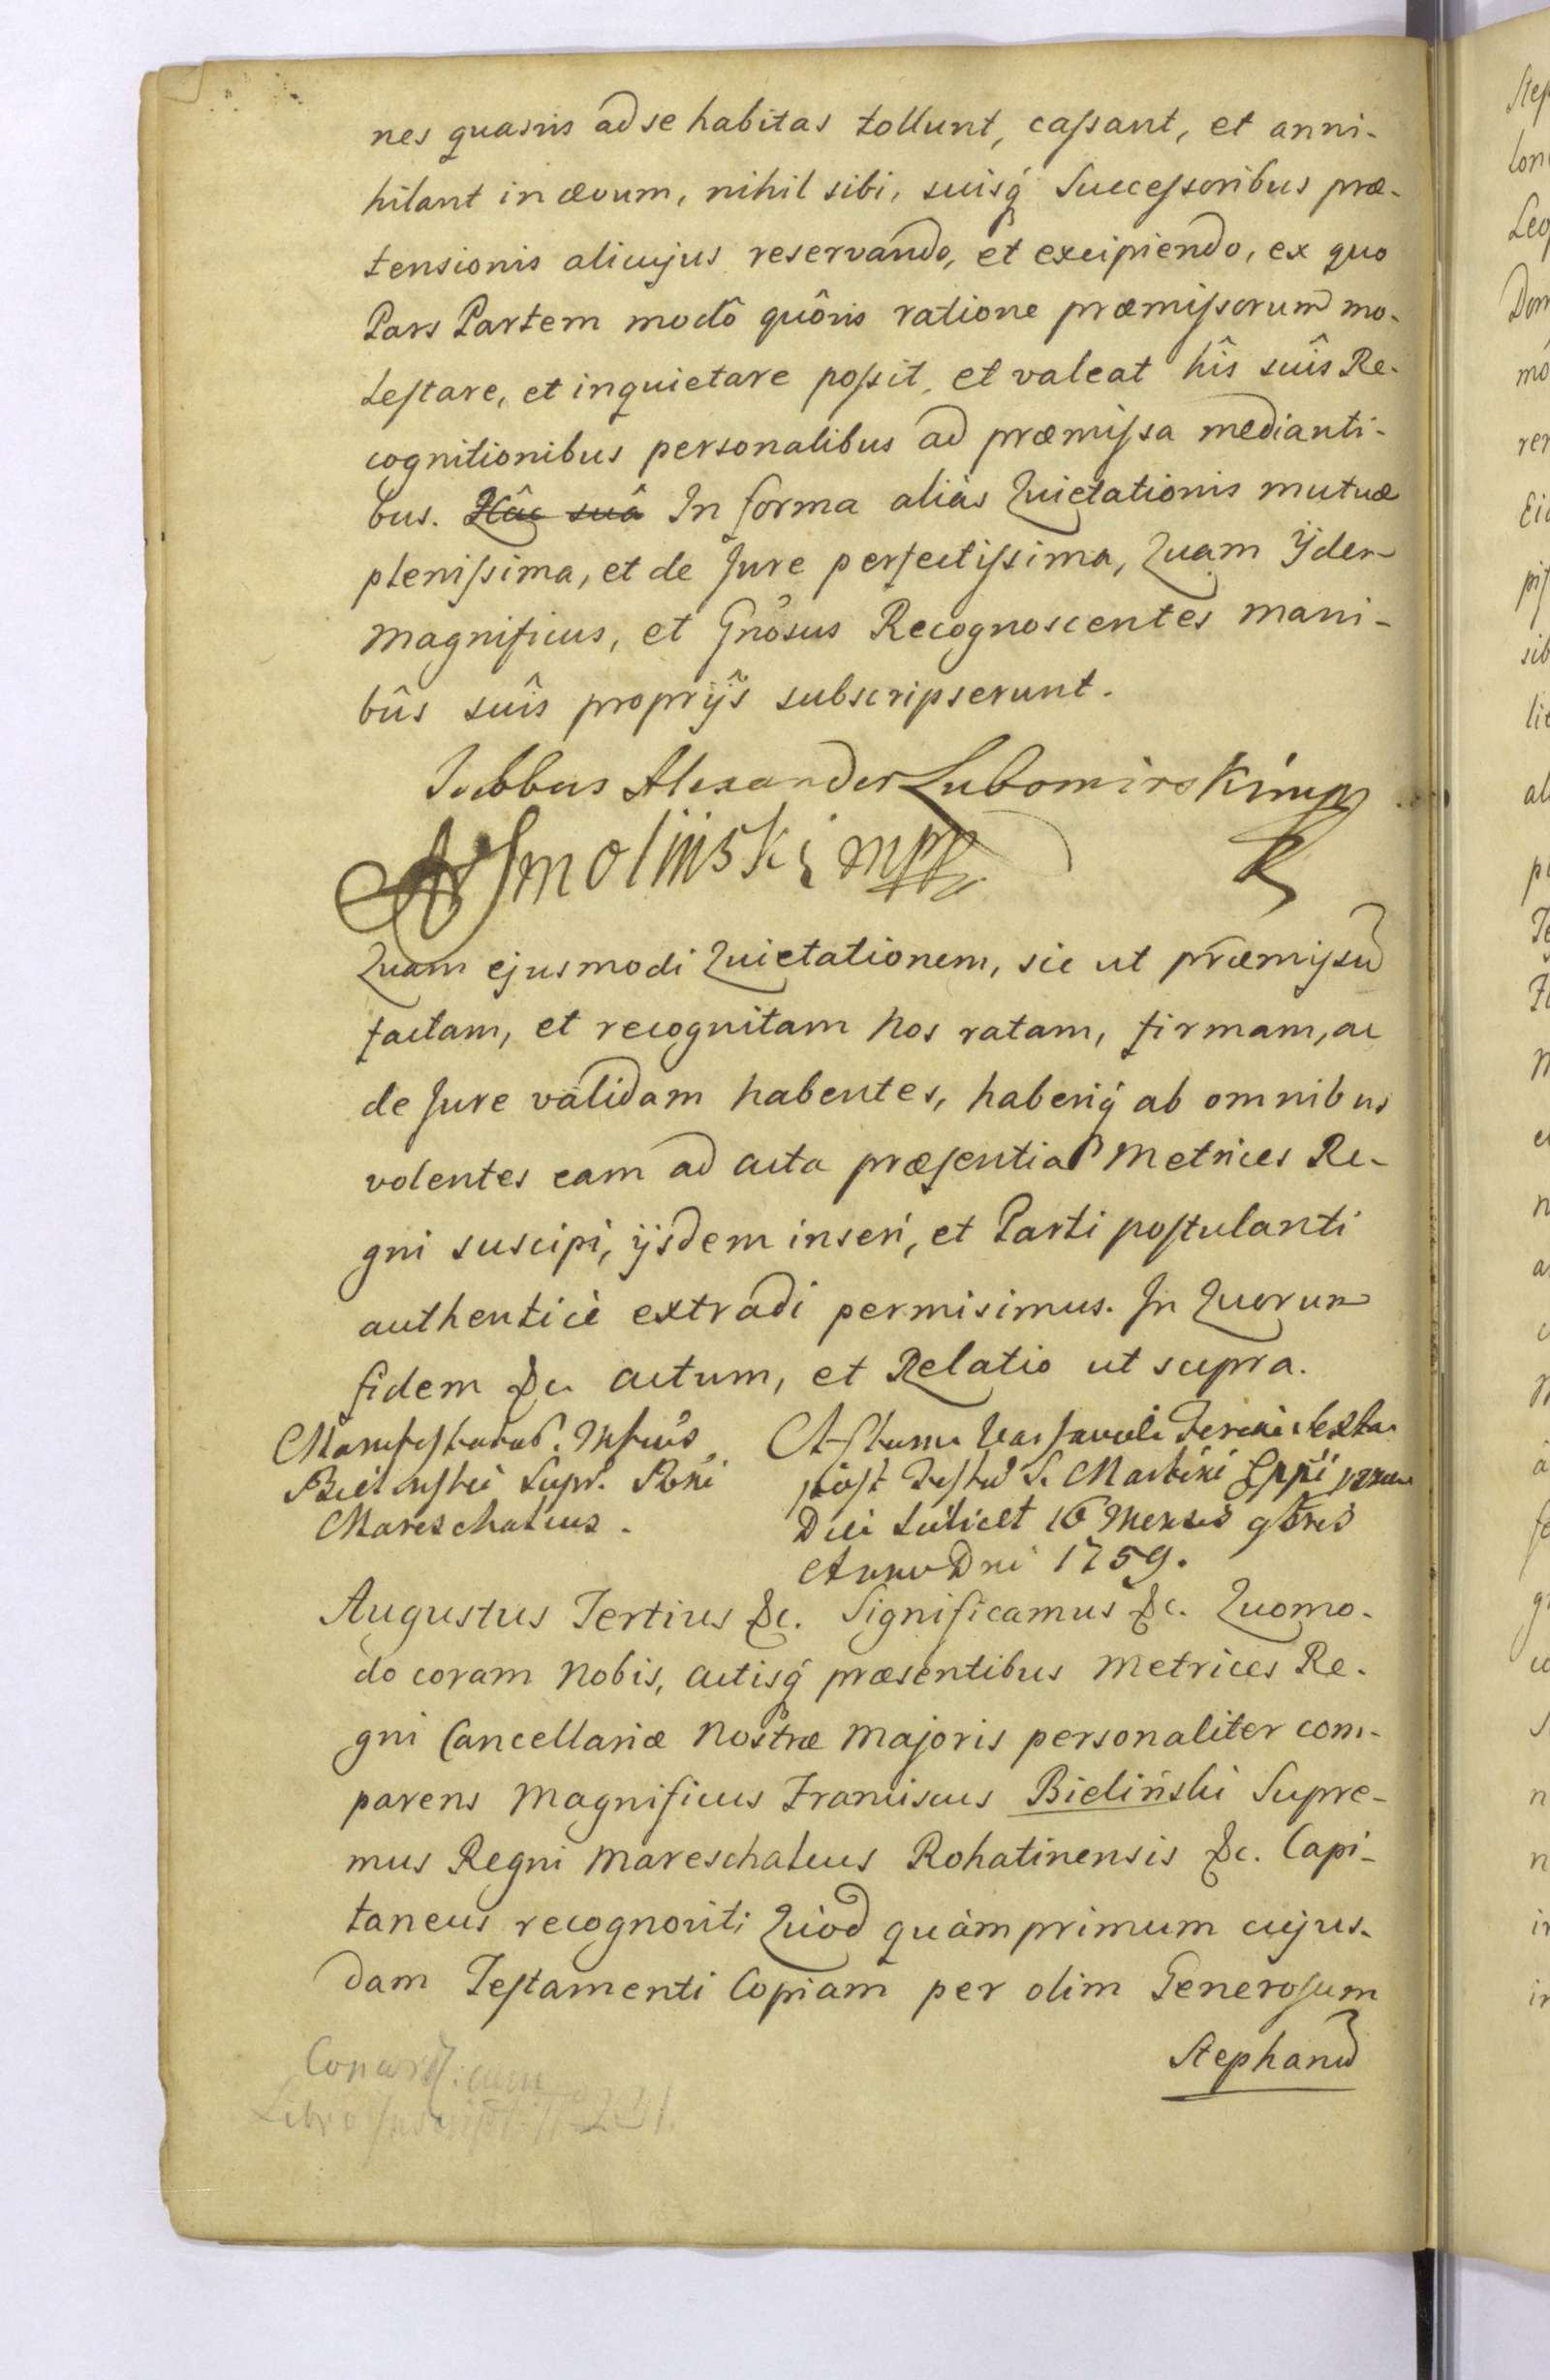 nes quasvis ad se habitas tollunt, caſsant, et anni-
hilant in ævum, nihil sibi, suisq́ Succeſsoribus præ-
tensionis alicujus reservando, et excipiendo, ex quo
Pars Partem modô quôvis ratione præmiſsorum mo-
leſtare, et inquietare poſsit, et valeat hîs suîs Re-
cognitionibus personalibus ad præmiſsa medianti-
bus. Hâc suâ In forma aliàs Quietationis mutuæ
pleniſsima, et de Jure perfectiſsima, Quam Ijdem
Magnificus, et Gnosus Recognoscentes mani-
bûs suîs proprijs subscripserunt.
Alexander Lubomirski mp
Smoliński mpp
Quam ejusmodi Quietationem, sic ut præmiſsũ
factam, et recognitam Nos ratam, firmam, ac
de Jure validam habentes, haberiq́ ab omnibus
volentes eam ad acta præſentia Metrices Re-
gni suscipi, ijsdem inseri, et Parti poſtulanti
authenticè extradi permisimus. In Quorum
fidem &c. actum, et Relatio ut supra.
Bielinski Supr. Rñi
Mareschalcus.
Actum Varsaviæ Feria sexta
post Feſtũ S. Martini Eppi
Die scilicet 16 Mensis 9bris
Anno Dni 1759.
Augustus Tertius &c. Significamus &c. Quomo-
do coram Nobis, actisq́ præsentibus Metrices Re-
gni Cancellariæ Noſtræ Majoris personaliter com-
parens Magnificus Franciscus Bieliński Supre-
mus Regni Mareschalcus Rohatinensis &c. Capi-
taneus recognovit; Quod quàmprimum cujus-
dam Teſtamenti Copiam per olim Generoſum
Stephanũ
cum
Libro 231.